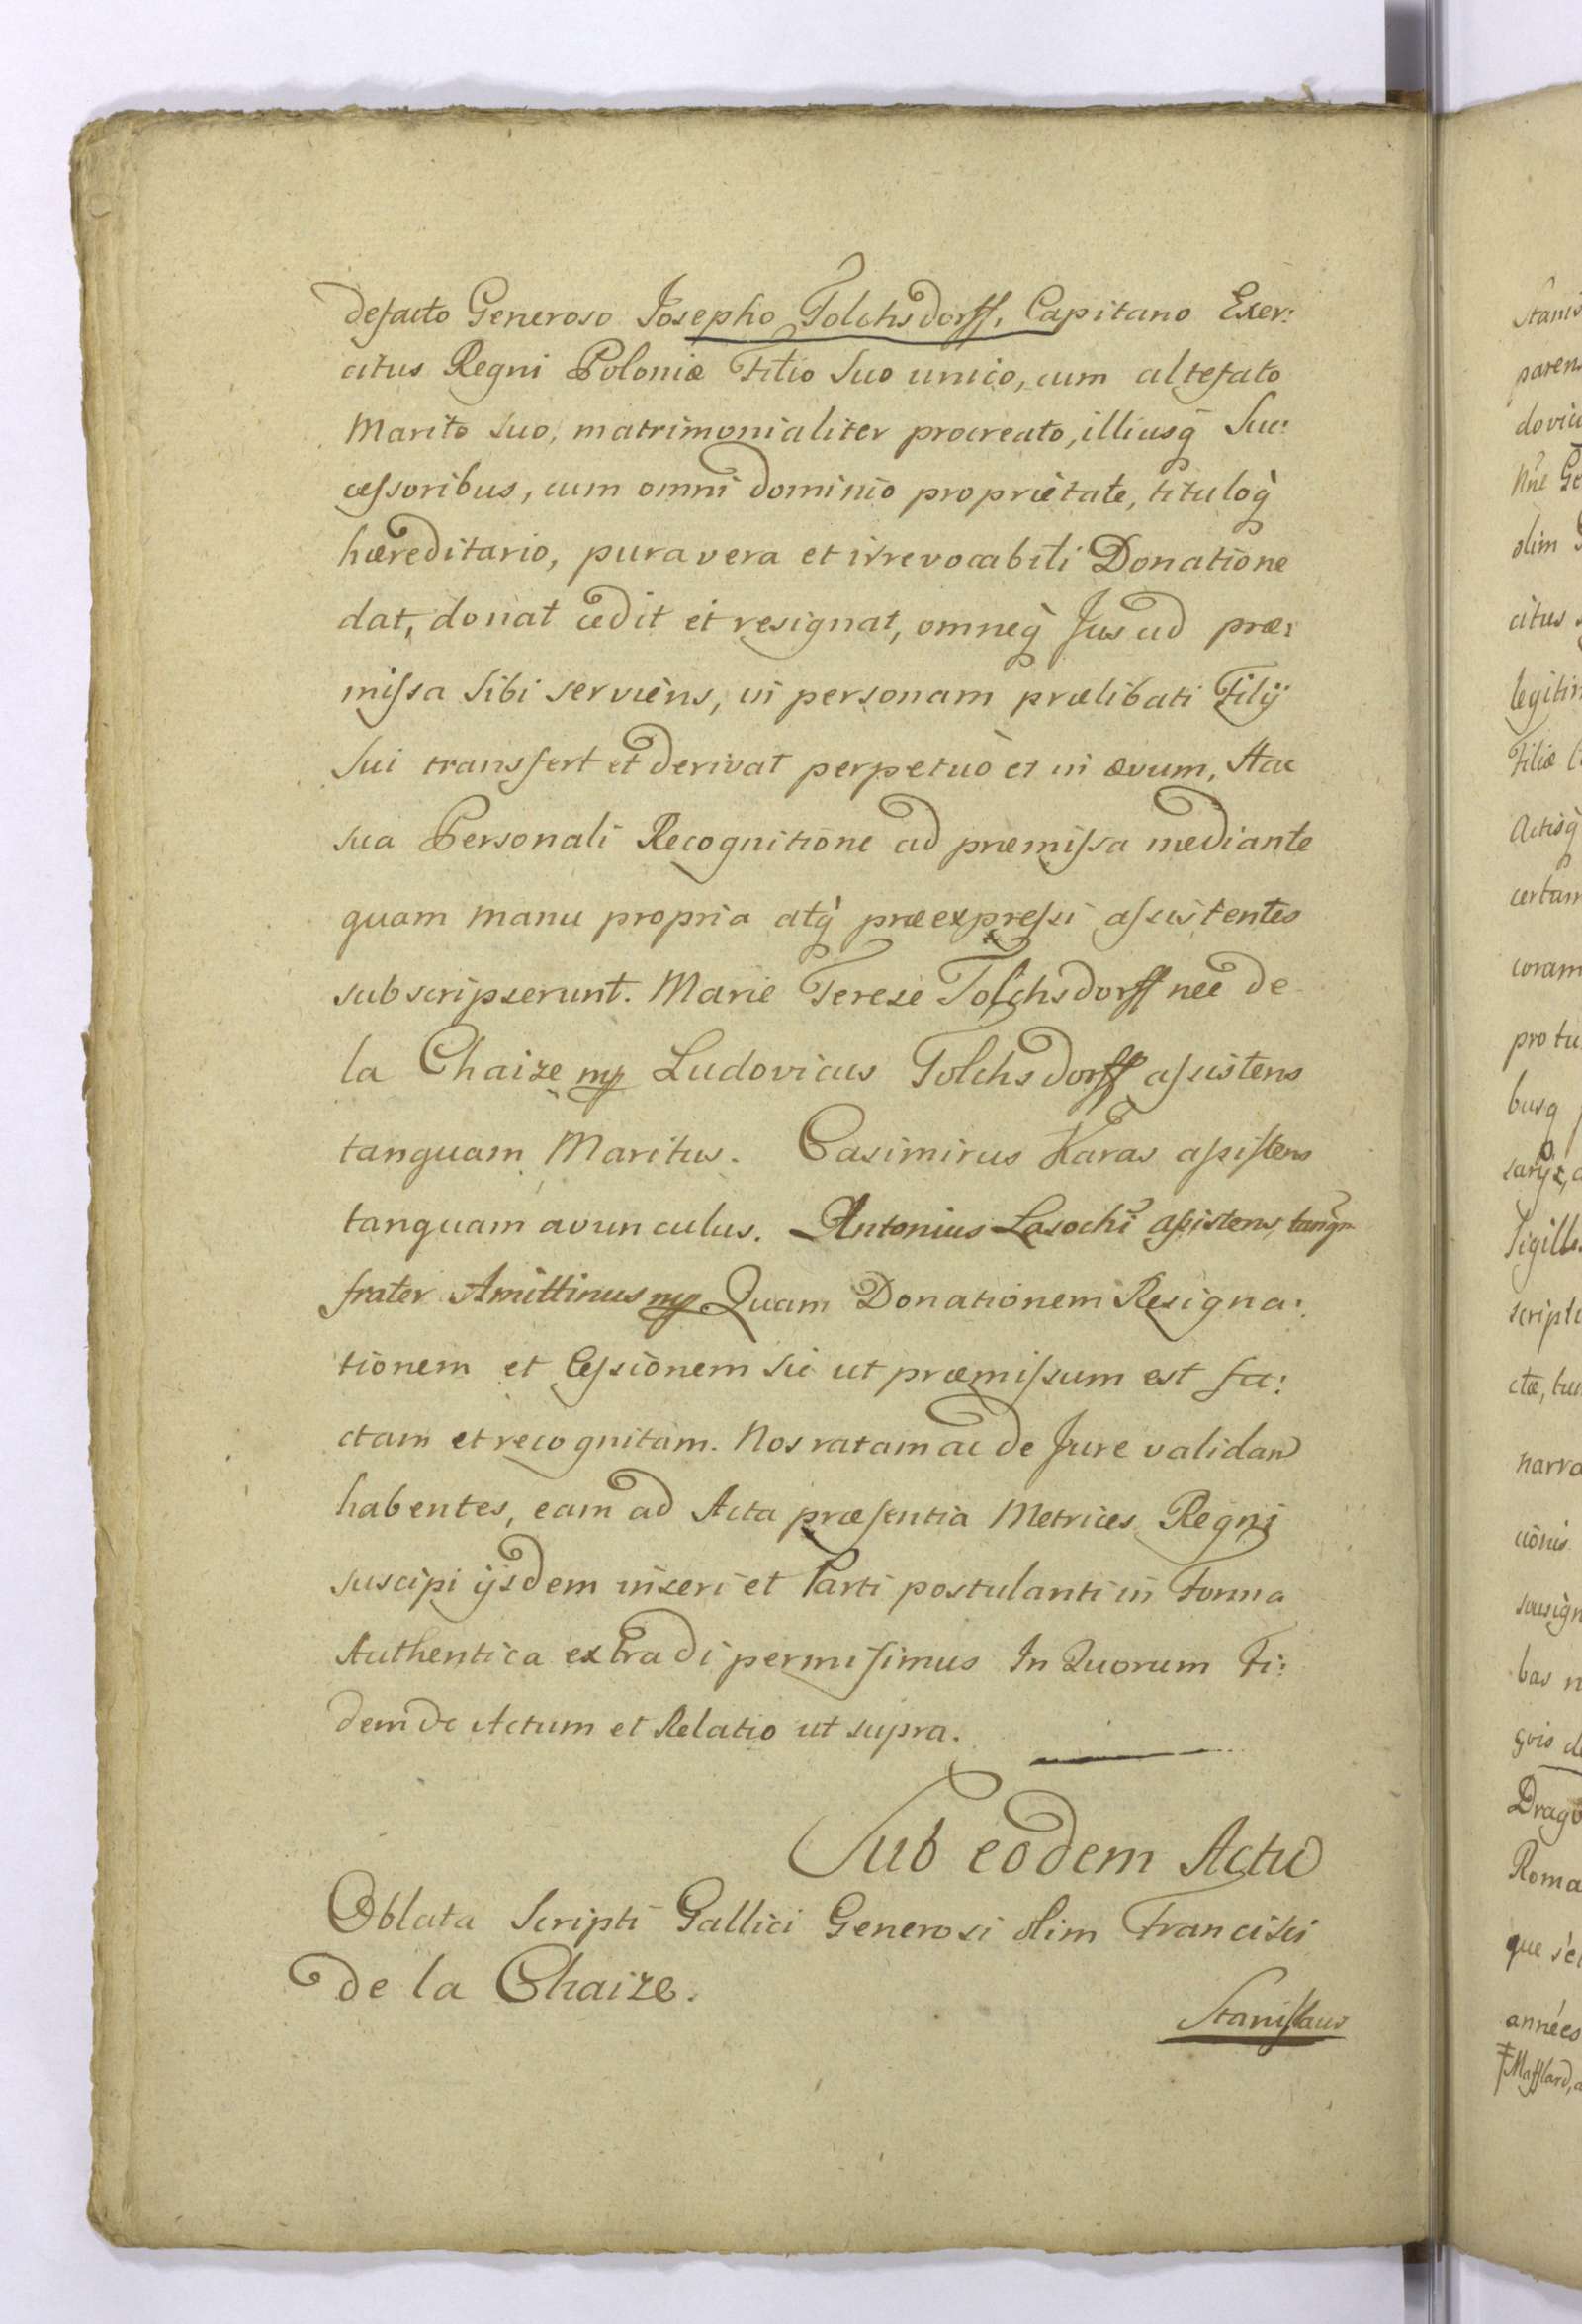 defacto Generoso Josepho Tolchsdorff, Capitano Exer:
citus Regni Poloniæ Filio Suo unico, cum altefato
Marito Suo, matrimonialiter procreato, illiusq̀ Suc:
cessoribus, cum omni dominio proprietate, tituloq̀
hæreditario, pura vera et irrevocabili Donatione
dat, donat cedit et resignat, omneq̀ Jus ad præ:
missa Sibi serviens, in personam prælibati Filij
Sui transfert et derivat perpetuò et in ævum, Hac
sua Personali Recognitione ad præmissa mediante
quam manu propria atq̀ præexpressi assistentes
subscripserunt. Marie Terese Tolchsdorff neé de
la Chaize mp Ludovicus Tolchsdorff assistens
tanquam Maritus. Casimirus Karas assistens
tanquam avunculus. Antonius Lasocki assistens, tanqm
frater Amittinus mp Quam Donationem Resigna:
tionem et Cessionem sic ut præmissum est fa:
ctam et recognitam. Nos ratam ac de Jure validam
habentes, eam ad Acta præsentia Metrices Regni
suscipi ijsdem inseri et Parti postulanti in Forma
Authentica extradi permisimus In Quorum Fi:
dem &c Actum et Relatio ut supra.
Sub eodem Actu
Oblata Scripti Gallici Generosi olim Francisci
de la Chaize.
Stanislaus
paren
olim
citus
legitim
Filiæ
Actisq̀
certam
coram
pro tu
busq
scripto
narra
bas
Drago
Roma
que
années